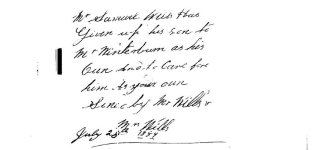 Mr Samuel Wills has
Given up his son to
Mr Winterburn as his
Own and to Care for
him as your own
Sined by Mr Wills
Mrs Wills
July 28th 1879